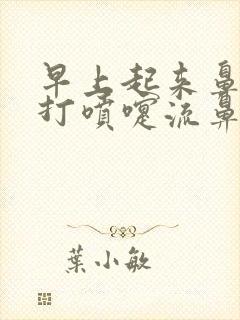 早上起来鼻
打喷嚏流鼻
葉小敏